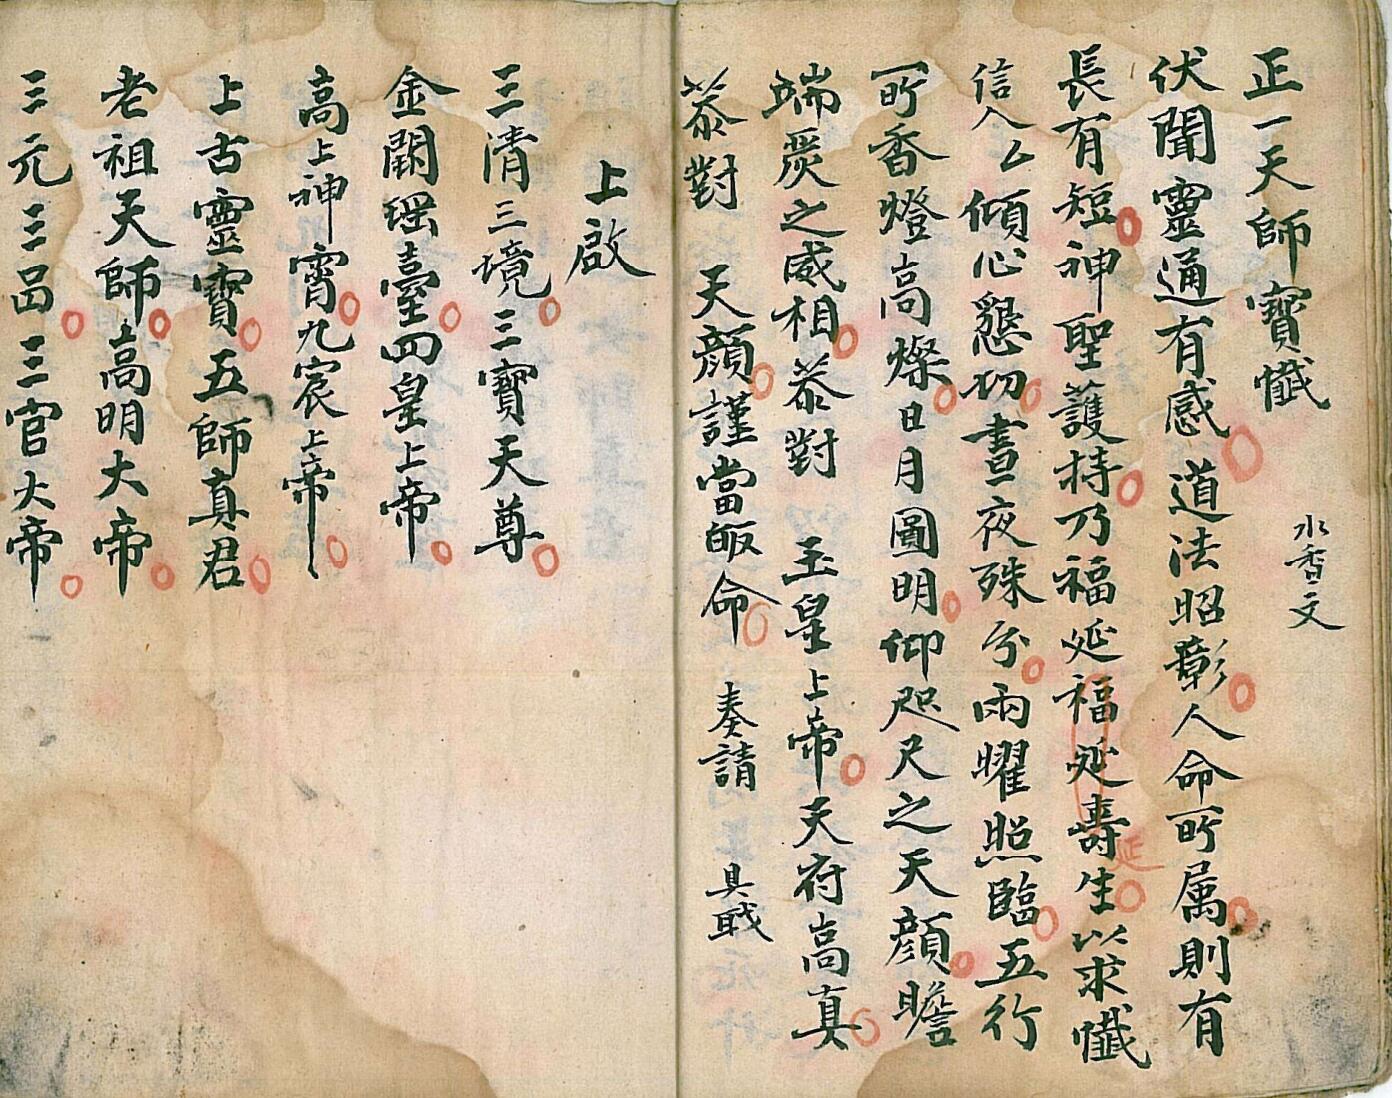 正一天師寶懺
水香文
伏聞靈通有感道法昭彰人命所属則有
長有短神聖護持乃福延福延壽生以求懺
延
信人厶傾心懇切晝夜殊分兩曜照臨五行
所香燈高燦日月圖明仰咫尺之天顔瞻
端嚴之威相恭對玉皇上帝天府高真
恭對天顔謹當皈命奏請具戝
上啟
三清三境三寶天尊
金闕瑶臺四皇上帝
高上神霄九宸上帝
上古靈寶五師真君
老祖天師高明大帝
三元三品三官大帝